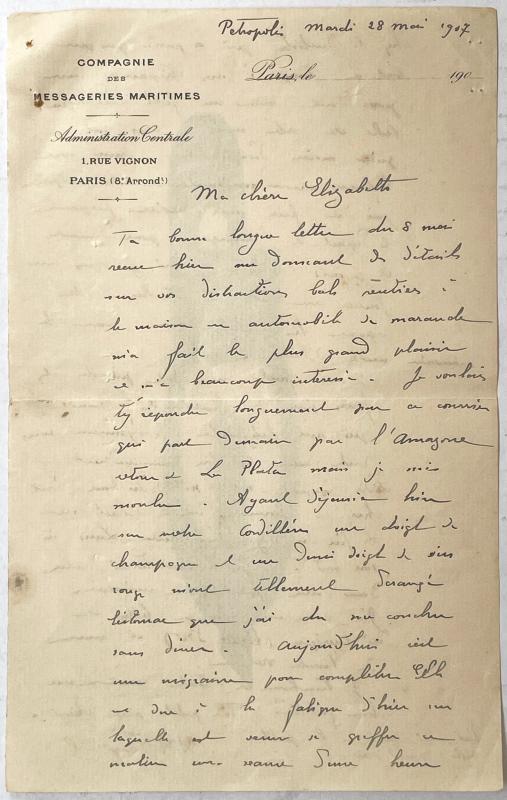 Petropolis mardi 28 mai 1907
COMPAGNIE
DES
MESSAGERIES MARITIMES
Administration Centrale
1, RUE VIGNON
PARIS (8e Arrondt)
Paris, le 190
Ma chère Elizabeth
Ta bonne longue lettre du 8 mai
recue hier me donnant des détails
sur vos distractions bals rentrées à
la maison en automobile de marande
m'a fait le plus grand plaisir
et m'a beaucoup interessé. Je voulais
t'y répondre longuement par ce courrier
qui part demain par l'Amazone
retour de La Plata mais je suis
moulu. Ayant déjeuné hier
sur notre Cordillère un doigt de
champagne et un demi doigt de vin
rouge m'ont tellement dérangé
l'estomac que j'ai du me coucher
sans diner. Aujourd'hui c'est
une migraine pour compléter Elle
est due à la fatigue d'hier sur
laquelle est venue se greffer ce
matin une séance d'une heure